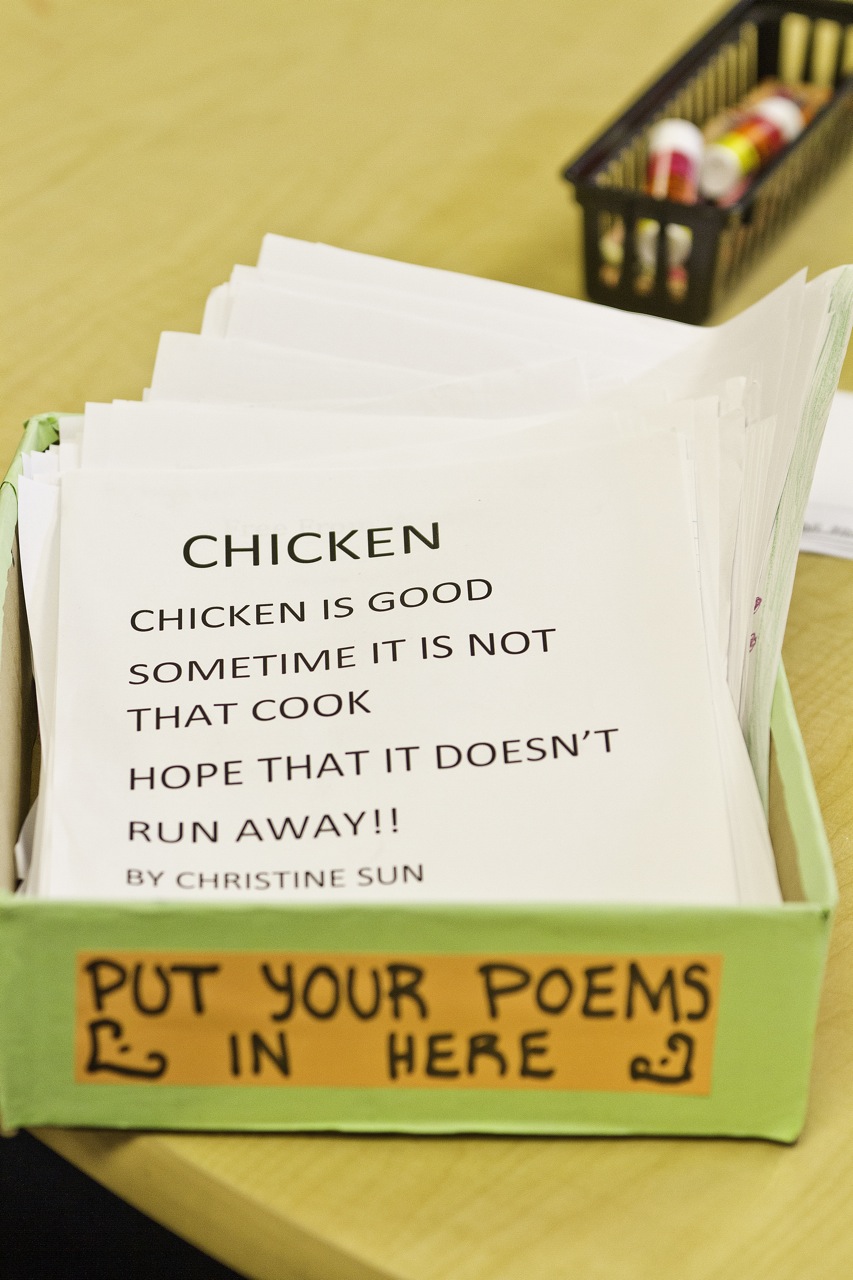 CHICKEN
CHICKEN IS GOOD
SOMETIME IT IS NOT
THAT COOK
HOPE THAT IT DOESN'T
RUN AWAY!!
BY CHRISTINE SUN
PUT YOUR POEMS
IN HERE